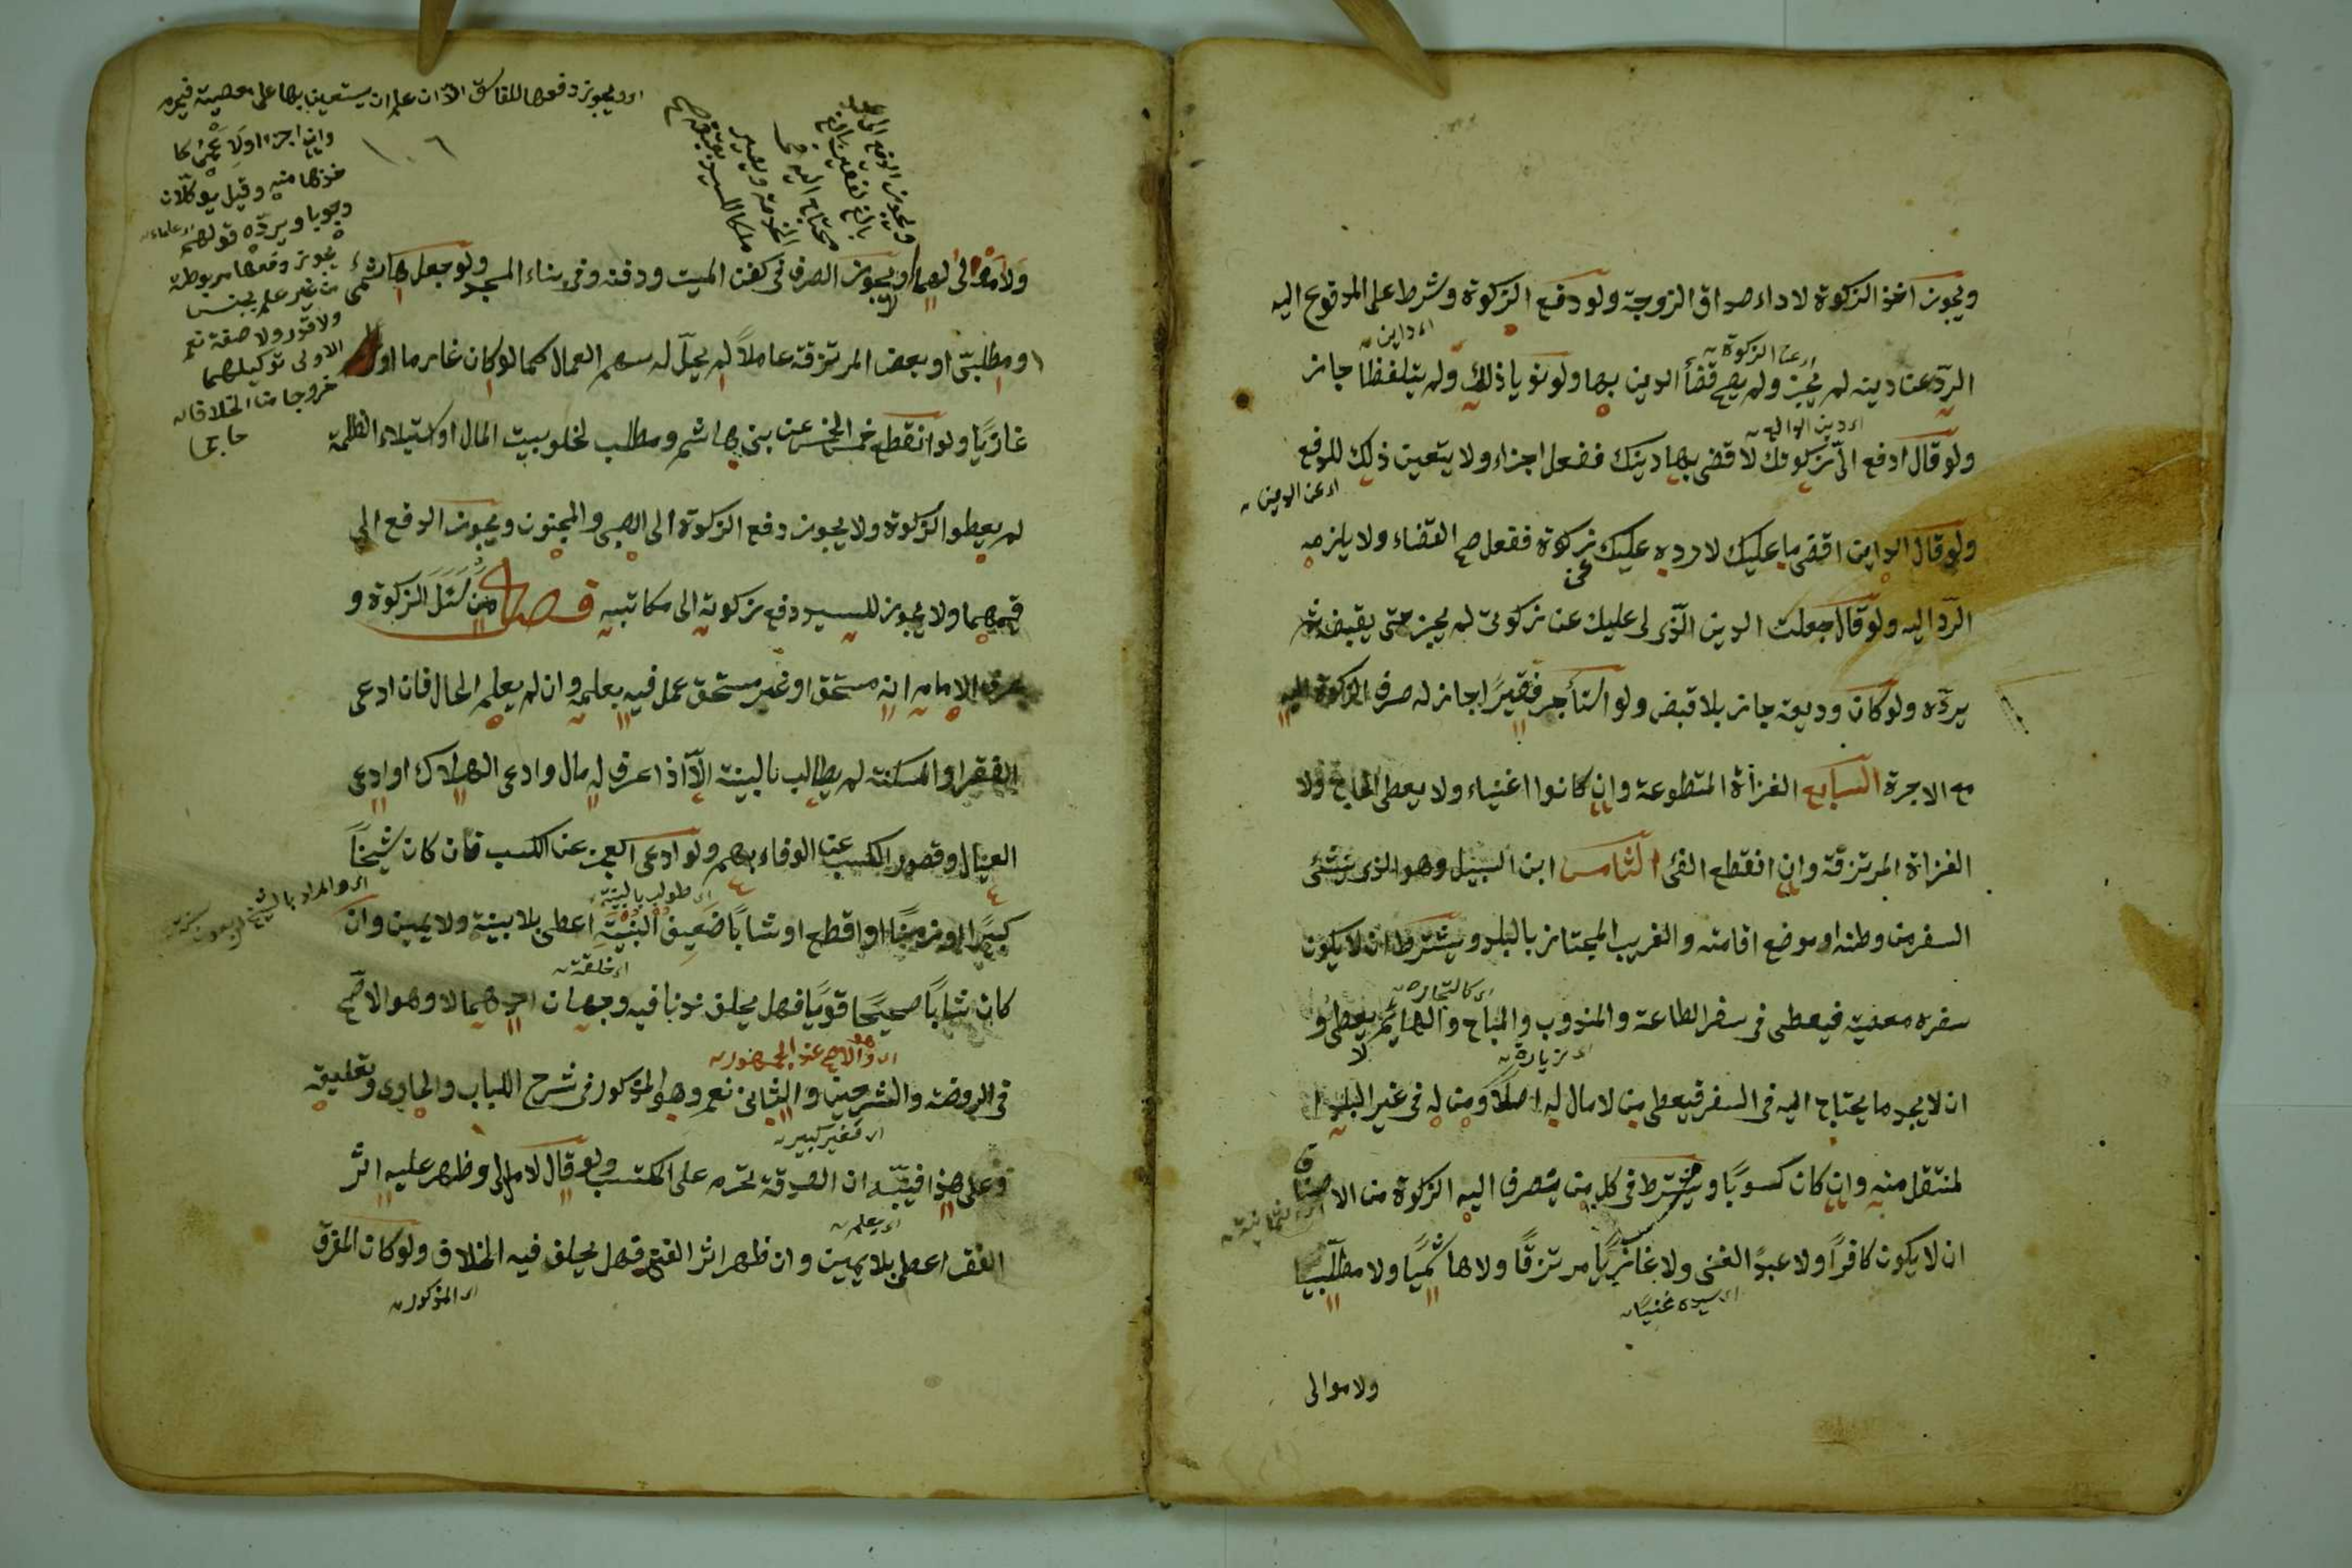 ويجوز اخذ الزكوة لاداء صداق الزوجة ولو دفع الزكوة وشرط على المدفوع اليه
اى داين
الردّ عن دينه لم يجز ولم يصح قضأ الدين بها ولو نويا ذلك ولم يتلفظا جاز
اى عن الزكوة
ولو قال ادفع الىّ زكوتك لاقضى بها دينك ففعل اجزاء ولا يتعين ذلك للدفع
اى عن الدين
ولو قال الداين اقض ما عليك لارده عليك زكوة ففعل صح القضاء ولا يلزمه
الردّ اليه ولو قال جعلت الدين الّذى لى عليك عن زكوتى لم يجز حتى يقبض ثم
يردّه ولو كان وديعة جاز بلا قبض ولو استأجر فقيرًا جاز له صرف الزكوة اليه
مع الاجرة السابع الغزاة المتطوعة وان كانوا اغنياء ولا يعطى الحاج ولا
الغزاة المرتزقة وان انقطع الفئ الثامن ابن السبيل وهو الذى ينشئ
السفر من وطنه او موضع اقامته والغريب المجتاز بالبلد ويشترط ان لا يكون
سفره معصية فيعطى فى سفر الطاعة والمندوب والمباح والهايم لا يعطى و
اى كالتجارة
اى زيارة
ان لا يجد ما يحتاج اليه فى السفر فيعطى من لا مال له اصلًا ومن له فى غير البلد ا
لمنتقل منه وان كان كسوبًا ويشترط فى كل من يصرف اليه الزكوة من الاصناف
ان لا يكون كافرًا ولا عبدًا لغنى ولا غازيًا مرتزقًا ولا هاشميًا ولا مطلبيا
اى سيده غنيًا
ولا موالى
اى ويجوز دفعها للفاسق الا ان علم ان يستعين بها على معصية فيحرم
١٠٦
وان اجزا
خذها منه وقيل يوكلان
وجوبا ويردّه قولهم
يجوز دفعها مربوطة
من غير علم بجنس
ولا قدر ولا صفة نعم
الاولى توكيلهما
خروجا من الخلاف
ولا موالى لهما ولا يجوز الصرف فى كفن الميت ودفنه وفى بناء المسجد ولو جعل هاشمى
او مطلبىّ او بعض المرتزقة عاملًا لم يحلّ له سهم العمال كما لو كان غارما او
غازيًا ولو انقطع خمس الخمس عن بنى هاشم ومطلب لخلو بيت المال او استيلاء الظلمة
لم يعطوا الزكوة ولا يجوز دفع الزكوة الى الصبى والمجنون ويجوز الدفع الى
قيمهما ولا يجوز للسيد دفع زكوته الى مكاتبه فصل من سئل الزكوة و
عرف الامام انه مستحق او غير مستحق عمل فيه بعلمه وان لم يعلم الحال فان ادعى
الفقر او المسكنة لم يطالب بالبينة الّا اذا عرف له مال وادعى الهلاك او ادعى
العيال وقصور الكسب عن الوفاء بهم ولو ادعى العجز عن الكسب فان كان شيخًا
اى طولب بالبينة
كبيرًا او زمنًا او اقطع او شابًا ضعيف البنية اعطى بلا بينة ولا يمين وان
اى خلقة
كان شابًا صحيحًا قويًا فهل يحلف ندبا فيه وجهان احدهما لا وهو الاصح
فى الروضة والشرحين والثانى نعم وهو المذكور فى شرح اللباب والحاوى وتعليقه
وعلى هذا فينبّه ان الصدقة تحرم على المكتسب ولو قال لا مال لى وظهر عليه اثر
الفقر اعطى بلا يمين وان ظهر اثر الغنى فهل يحلف فيه الخلاف ولو كان المفرق
اى يعلم
اى المذكور